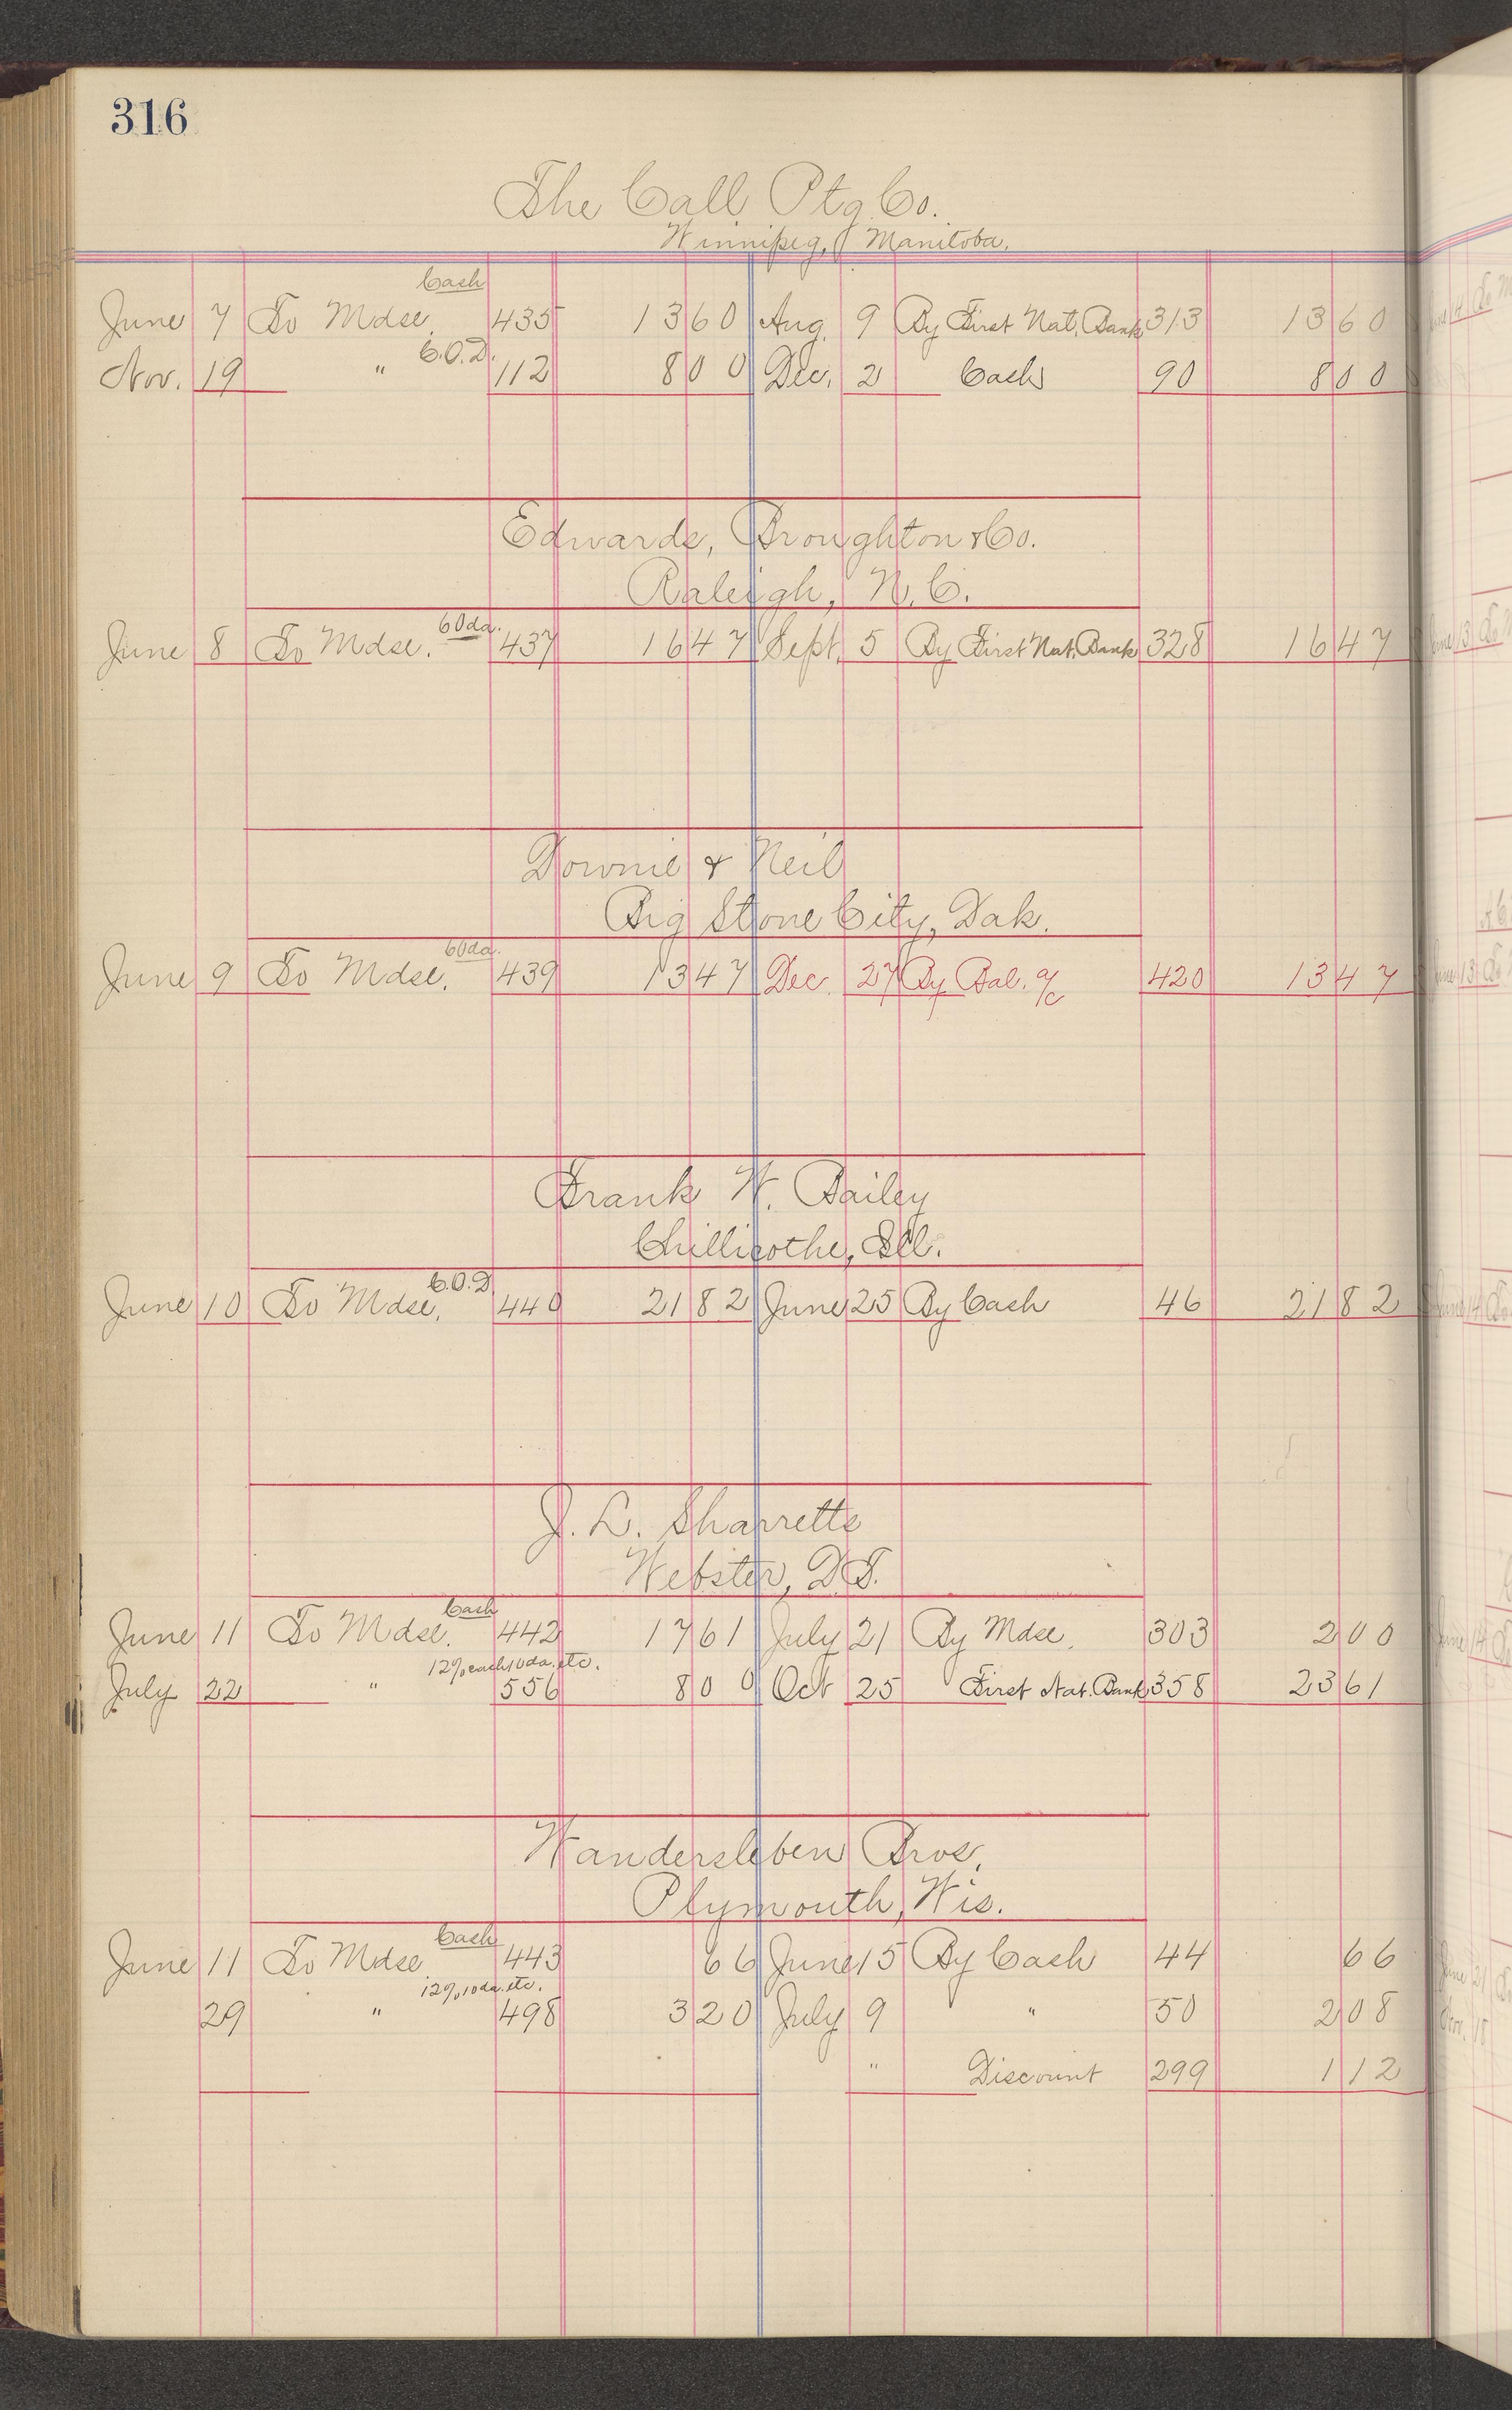 316
The Call Ptg. Co.
Winnipeg, Manitoba.
Cash
June 7 To Mdse. 435 13 60 Aug. 9 By First Nat. Bank 313 13 60
C.O.D.
Nov. 19 " 112 8 00 Dec. 2 Cash 90 8 00
Edwards, Broughton & Co.
Raleigh, N.C.
60 da.
June 8 To Mdse. 437 16 47 Sept. 5 By First Nat. Bank 328 16 47
Downie & Neil
Big Stone City, Dak.
60 da.
June 9 To Mdse. 439 13 47 Dec. 27 By Bal. a/c 420 13 47
Frank W. Bailey
Chillicothe, Ill.
C.O.D.
June 10 To Mdse. 440 21 82 June 25 By Cash 46 21 82
J. L. Sharretts
Webster, D.T.
Cash
June 11 To Mdse. 442 17 61 July 21 By Mdse. 303 2 00
12% cash 10 da. etc.
July 22 " 556 8 00 Oct 25 First Nat. Bank 358 23 61
Wandersleben Bros.
Plymouth, Wis.
Cash
June 11 To Mdse 443 66 June 15 By Cash 44 66
12% 10 da. etc.
29 " 498 3 20 July 9 " 50 2 08
" Discount 299 1 12